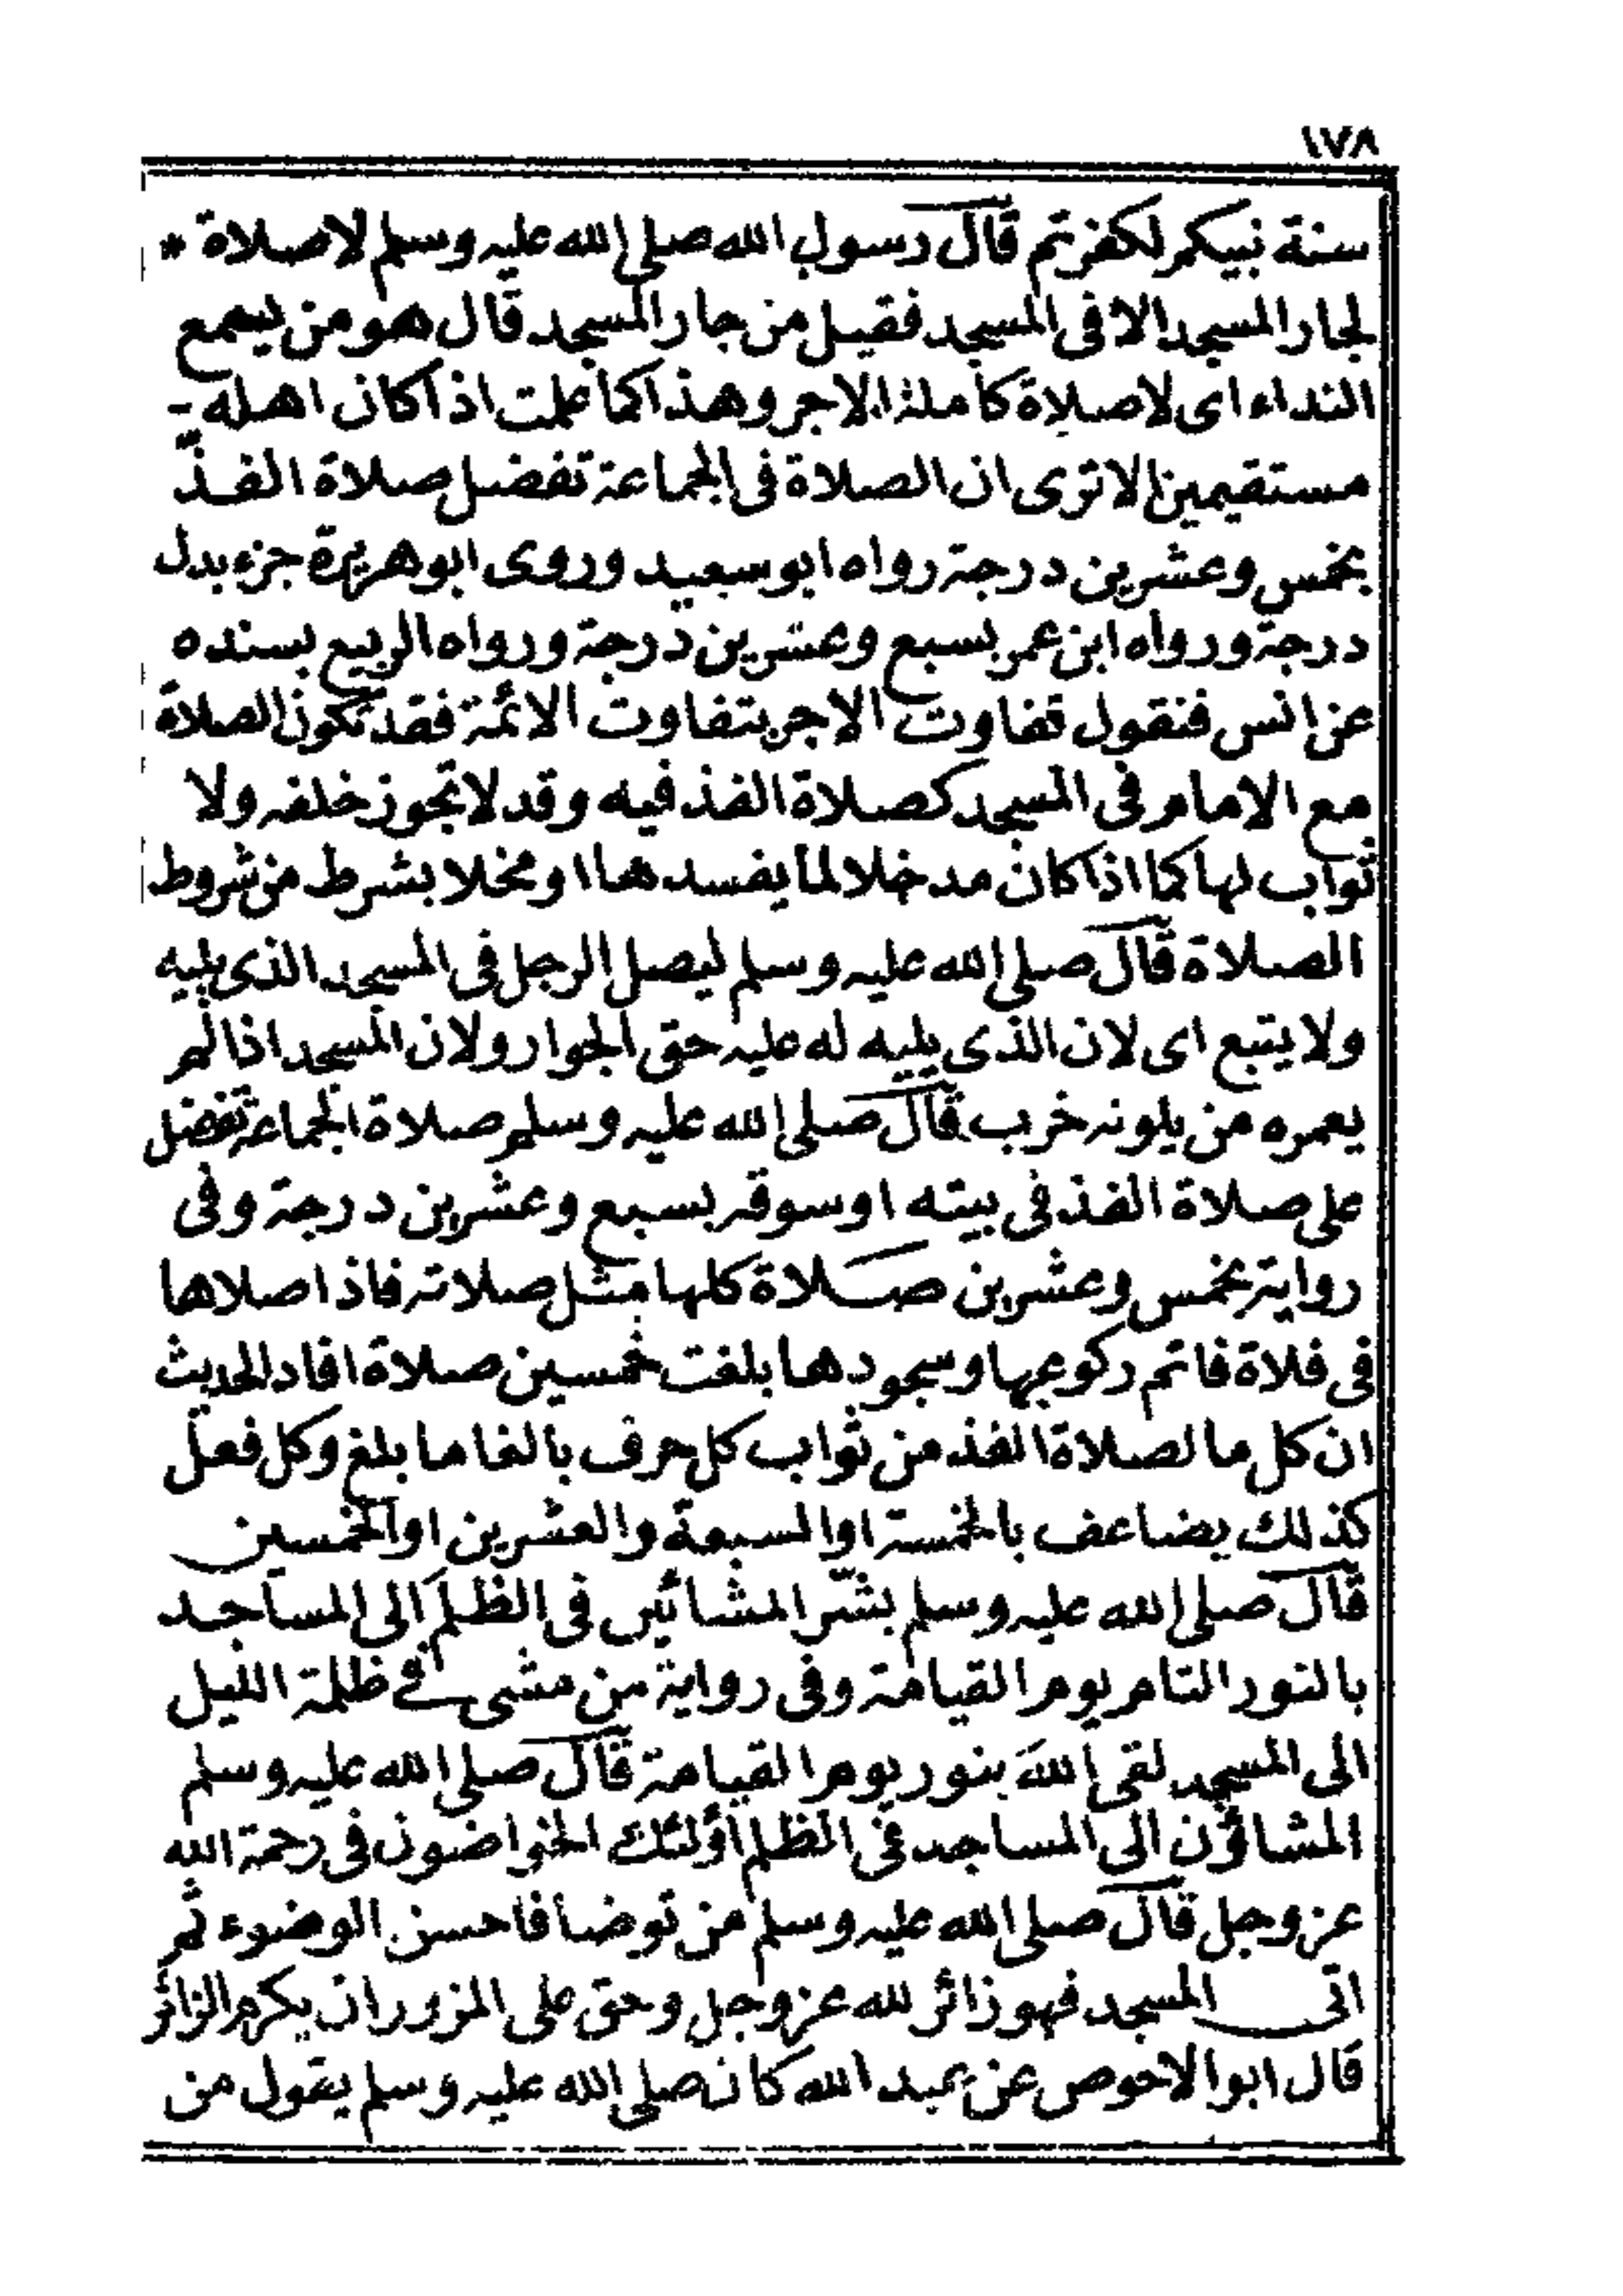 ١٧٨
سنة نبيكم لكفرتم قال رسول الله صلى الله عليه وسلم لا صلاة *
لجار المسجد الا في المسجد فقيل من جار المسجد قال هو من يسمع
النداء اى لا صلاة كاملة الاجر وهذا كما علمت اذا كان اهله -
مستقيمين الا ترى ان الصلاة في الجماعة تفضل صلاة الفذّ
بخمس وعشرين درجة رواه ابو سعيد وروى ابو هريرة جزء بدل
درجة ورواه ابن عمر بسبع وعشرين درجة ورواه الربيع بسنده
عن انس فنقول تفاوت الاجر بتفاوت الائمة فقد تكون الصلاة
مع الامام في المسجد كصلاة الفذ فيه وقد لا تجوز خلفه ولا
ثواب لها كما اذا كان مدخلا لما يفسدها او مخلا بشرط من شروط
الصلاة قال صلى الله عليه وسلم ليصل الرجل في المسجد الذى يليه
ولا يتبع اى لان الذى يليه له عليه حق الجوار ولان المسجد اذا لم
يعمره من يلونه خرب قال صلى الله عليه وسلم صلاة الجماعة تفضل
على صلاة الفذ في بيته او سوقه بسبع وعشرين درجة وفى
رواية بخمس وعشرين صلاة كلها مثل صلاته فاذا صلاها
في فلاة فاتم ركوعها وسجودها بلغت خمسين صلاة افاد الحديث
ان كل ما لصلاة الفذ من ثواب كل حرف بالغا ما بلغ وكل فعل
كذلك يضاعف بالخمسة او السبعة والعشرين او الخمسين
قال صلى الله عليه وسلم بشّر المشائين في الظلم الى المساجد
بالنور التام يوم القيامة وفى رواية من مشى في ظلمة الليل
الى المسجد لقى اللهَ بنور يوم القيامة قال صلى الله عليه وسلم
المشاؤن الى المساجد في الظلم اولئك الخواضون في رحمة الله
عز وجل قال صلى الله عليه وسلم من توضا فاحسن الوضوء ثم
اتى المسجد فهو زائر لله عز وجل وحق على المزور ان يكرم الزائر
قال ابو الاحوص عن عبد الله كان صلى الله عليه وسلم يقول من